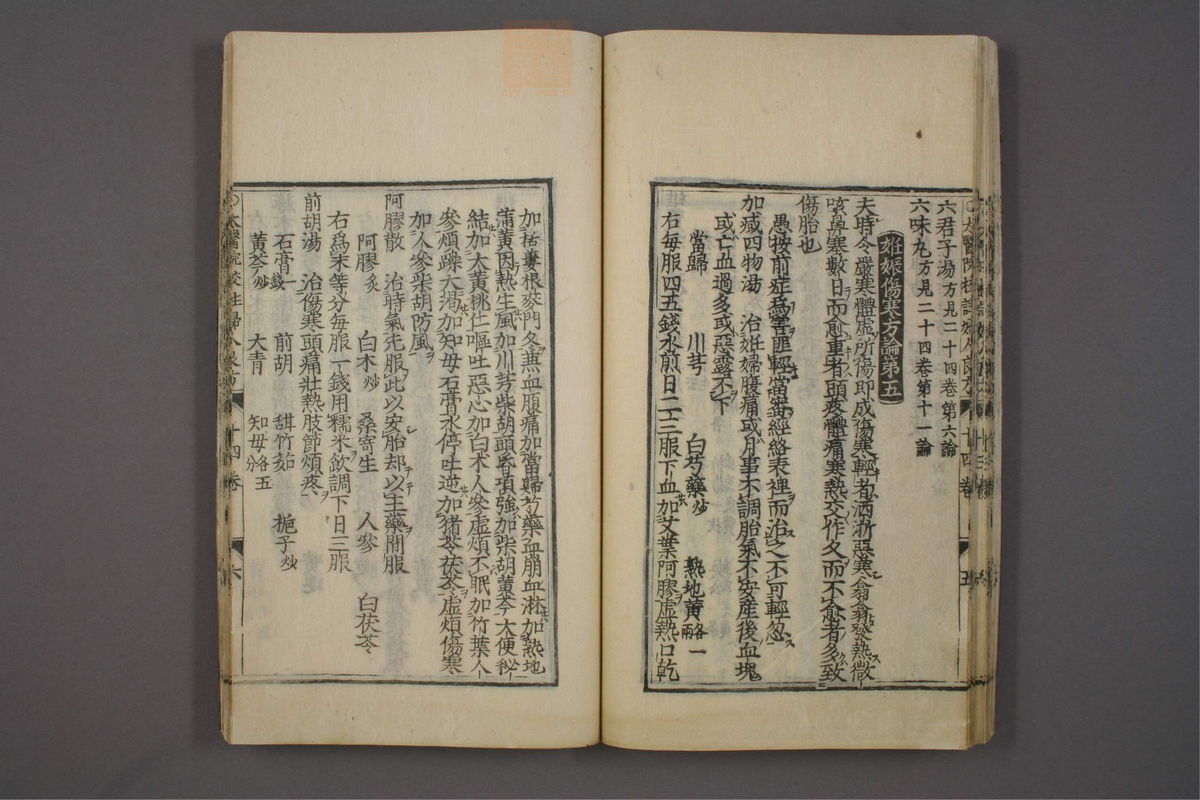 六君子湯方見二十四卷第六論
六味丸方見二十四卷第十一論
妊娠傷寒方論第五
夫時令嚴寒體虛所傷即成傷寒輕者洒淅惡寒翕翕發熱微
咳鼻寒數日而愈重者頭疼體痛寒熱交作久而不愈者多致
傷胎也
愚按前症爲害匪輕當審經絡表裡而治之不可輕忽
加減四物湯 治妊婦腹痛或月事不調胎氣不安產後血塊
或亡血過多或惡露不下
當歸 川芎 白芍藥炒 熟地黄各一兩
右每服四五錢水煎日二三服下血加艾葉阿膠虛熱口乾
加栝蔞根麥門冬𤍠血腹痛加當歸芍藥血崩血淋加熟地
蒲黄因熱生風加川芎柴胡頭昏項強加柴胡黄芩大便秘
結加大黄桃仁嘔吐惡心加白术人參虛煩不眠加竹葉人
參煩躁大渴加知母石膏水停吐逆加猪苓茯苓虛煩傷寒
加人參柴胡防風
阿膠散 治時氣先服此以安胎却以主藥間服
阿膠炙 白术炒 桑寄生 人參 白茯苓
右爲末等分每服一錢用糯米飲調下日三服
前胡湯 治傷寒頭痛壯熱肢節煩疼
石膏一錢 前胡 甜竹茹 梔子炒
黄芩炒 大青 知母各五分
太醫院校註婦人良方 十四卷 六